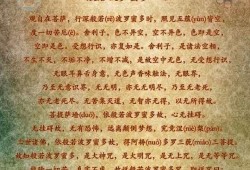 观自在菩萨，行深般若波罗蜜多时，照见五蕴(yùn)皆空，
度一切苦厄(è)。舍利子，色不异空，空不异色，色即是空，
空即是色，受想行识，亦复如是。舍利子，是诸法空相，
不生不灭，不垢不净，不增不减。是故空中无色，无受想行识，
无眼耳鼻舌身意，无色声香味触法，无眼界，
乃至无意识界，无无明，亦无无明尽，乃至无老死，
亦无老死尽。无苦集灭道，无智亦无得，以无所得故。
菩提萨埵(duǒ)，依般若波罗蜜多故，心无挂碍。
无挂碍故，无有恐怖，远离颠倒梦想，究竟涅(niè)槃(pán)。
三世诸佛，依般若波罗蜜多故，得阿耨(nòu)多罗三藐(miǎo)三菩提。
故知般若波罗蜜多，是大神咒，是大明咒，是无上咒，是无等等咒，